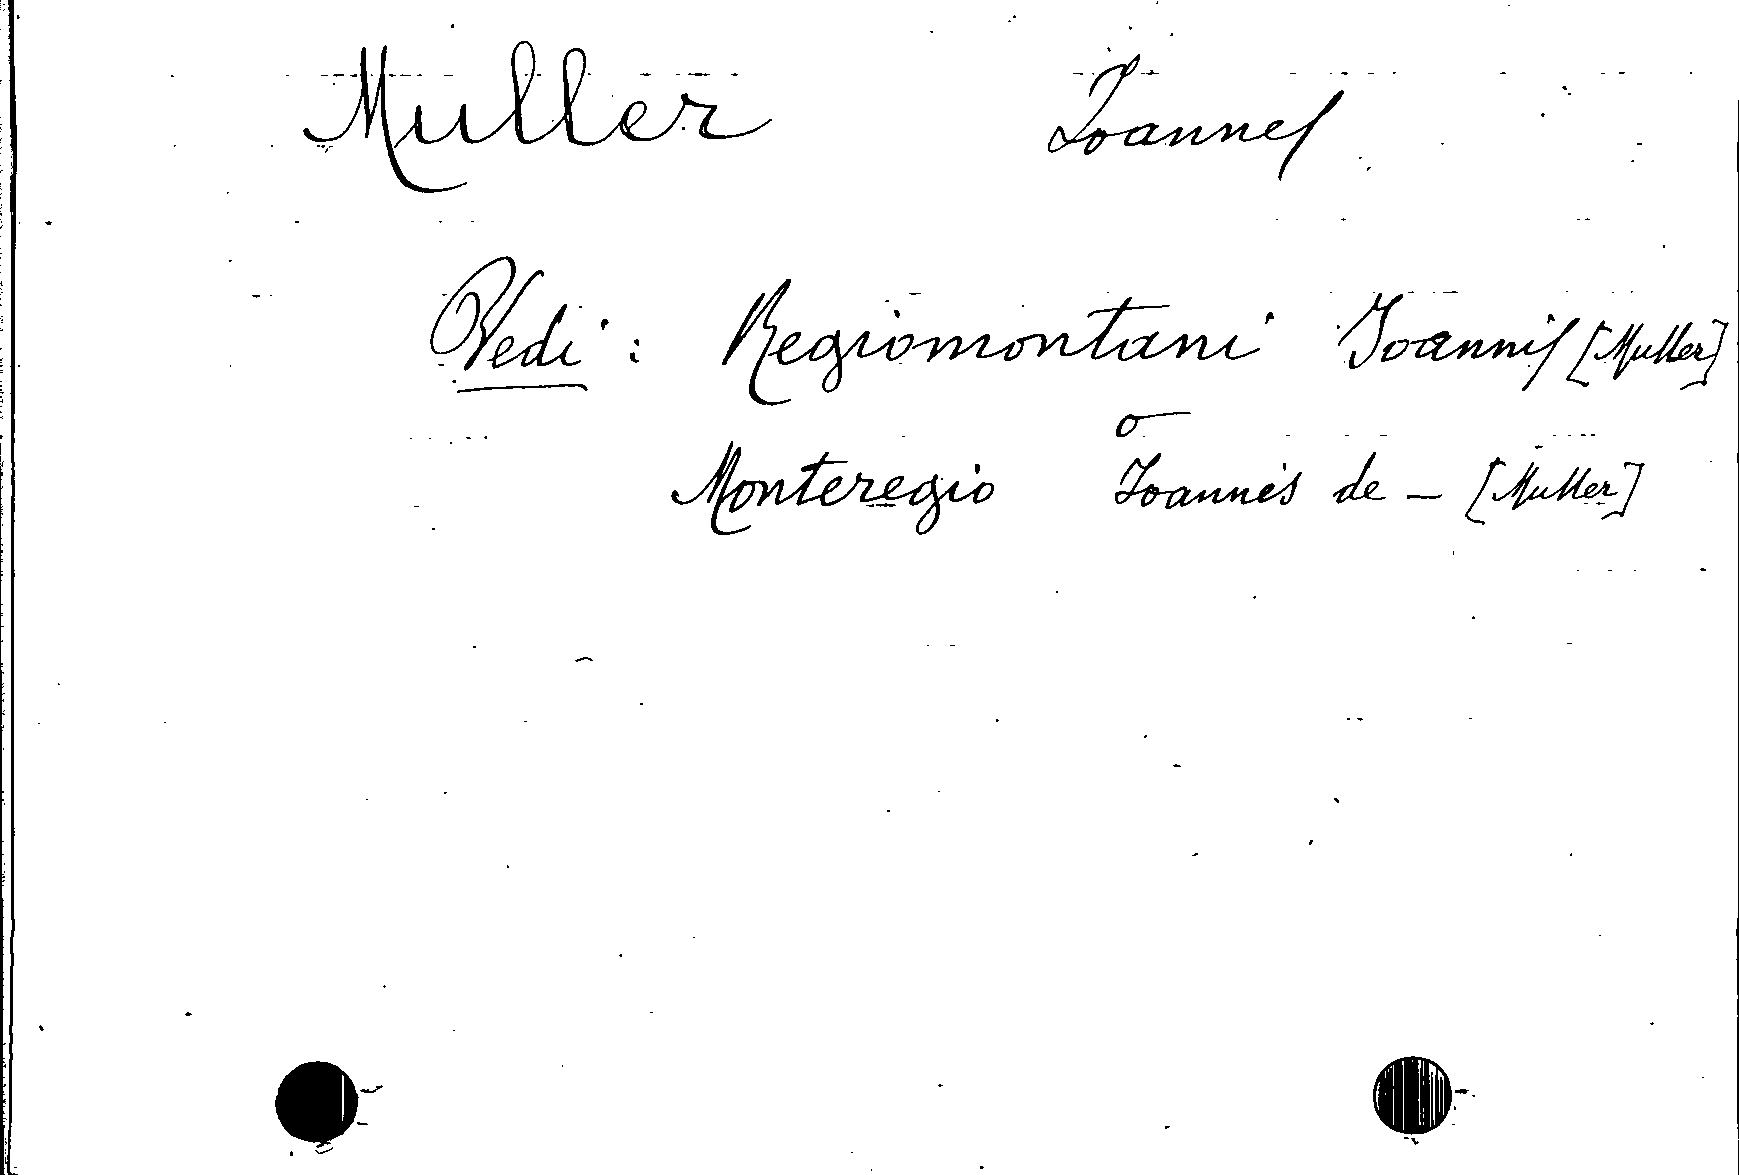 Muller Ioannes
Vedi: Regiomontani Ioannis [Muller]
o
Monteregio Ioannes de — [Muller]